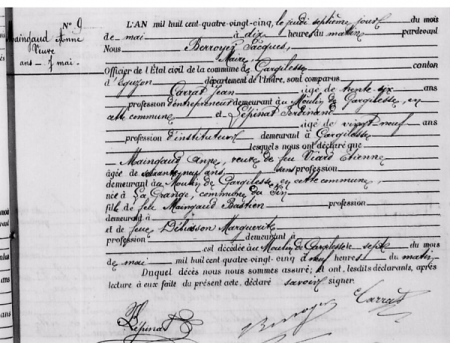 N° 9
Maingaud Anne
Veuve
ans - 7 mai.
L'AN mil huit cent-quatre-vingt-cinq, le jeudi septième jour du mois
de mai à dix heures du matin pardevant
Nous Berroyer Jacques,
Maire
Officier de l'État civil de la commune de Gargilesse canton
d'Eguzon département de l'Indre, sont comparus
Carrat Jean âgé de trente six ans
profession d'entrepreneur demeurant au Moulin de Gargilesse, en
cette commune et Pépinat Ferdinand
âgé de vingt neuf ans
profession d'instituteur demeurant à Gargilesse
lesquels nous ont déclaré que
Maingaud Anne, veuve de feu Viard Etienne
âgée de ans sans profession
demeurant au Moulin de Gargilesse, en cette commune
née à La Grange, commune du Pin
fille de feu Maingaud Bastien profession
demeurant à
et de feue Marguerite
profession demeurant à
est décédée au Moulin de Gargilesse sept du mois
de mai mil huit cent quatre-vingt-cinq à neuf heures du matin
Duquel décès nous nous sommes assuré; et ont, lesdits déclarants, après
lecture à eux faite du présent acte, déclaré savoir signer.
Pépinat Berroyer Carrat